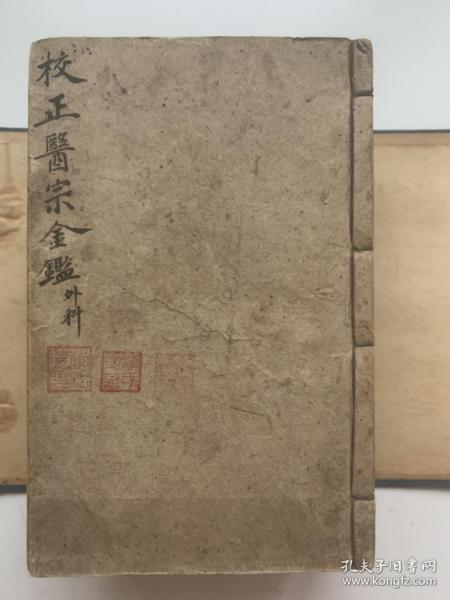 校正醫宗金鑑
外科
孔夫子旧书网
www.kongfz.com